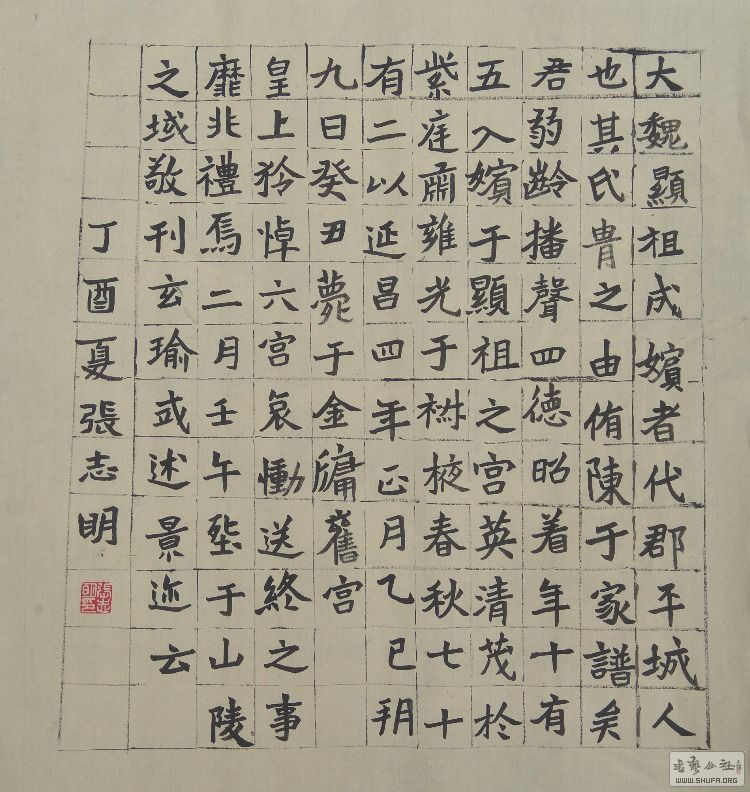 大魏顯祖成嬪者代郡平城人
也其氏胄之由侑陳于家譜矣
君弱齡播聲四德昭着年十有
五入嬪于顯祖之宮英清茂於
紫庭肅雍光于椒掖春秋七十
有二以延昌四年正月乙巳朔
九日癸丑薨于金墉舊宮
皇上矜悼六宮哀慟送終之事
靡非禮焉二月壬午塟于山陵
之域敬刊玄瑜式述景迹云
丁酉夏張志明
WWW.SHUFA.ORG